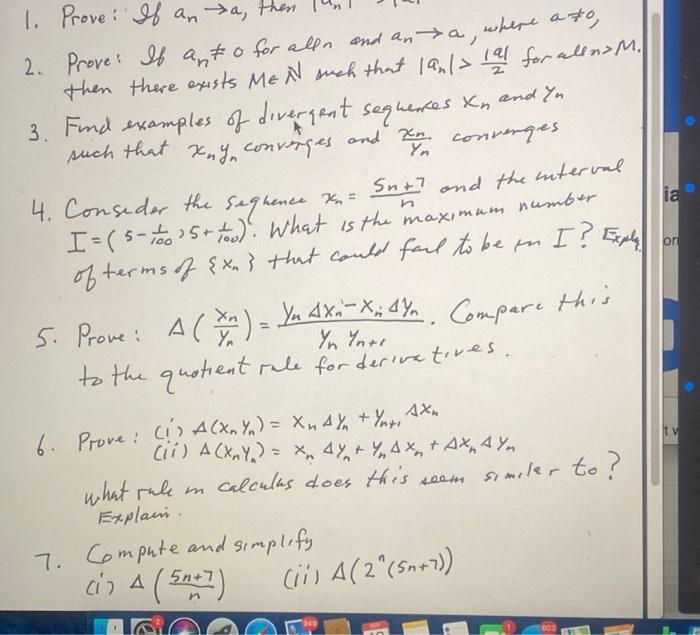 1. Prove: If aₙ → a, then
2. Prove: If aₙ ≠ 0 for all n and aₙ → a, where a ≠ 0,
then there exists M ∈ N such that |aₙ| > |a|/2 for all n > M.
3. Find examples of divergent sequences xₙ and yₙ
such that xₙyₙ converges and xₙ/yₙ converges
4. Consider the sequence xₙ = (5n+7)/n and the interval
I = (5 - 1/100, 5 + 1/100). What is the maximum number
of terms of {xₙ} that could fail to be in I?
5. Prove: Δ(xₙ/yₙ) = (yₙ Δxₙ - xₙ Δyₙ)/(yₙ yₙ₊₁). Compare this
to the quotient rule for derivatives.
6. Prove: (i) Δ(xₙyₙ) = xₙ Δyₙ + yₙ₊₁ Δxₙ
(ii) Δ(xₙyₙ) = xₙ Δyₙ + yₙ Δxₙ + Δxₙ Δyₙ
what rule in calculus does this seem similar to?
Explain.
7. Compute and simplify
(i) Δ((5n+7)/n) (ii) Δ(2ⁿ(5n+7))